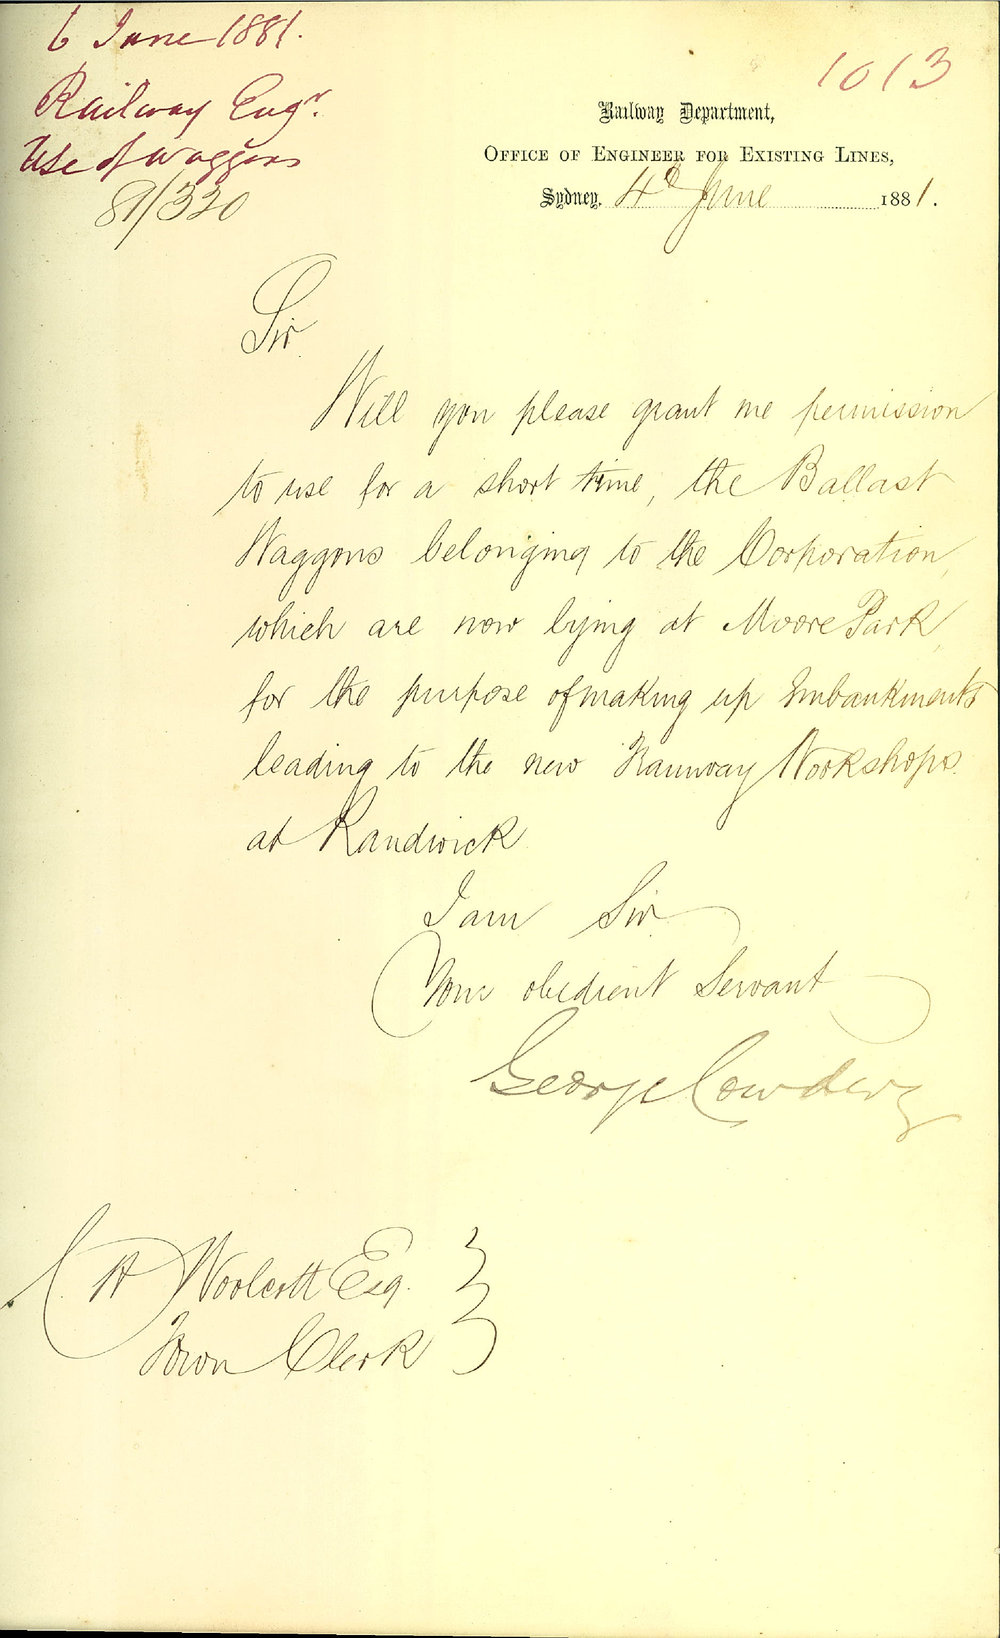 6 June 1881.
Railway Engr.
Use of Waggons
81/320
1013
Railway Department,
OFFICE OF ENGINEER FOR EXISTING LINES,
Sydney, 4th June 1881.
Sir
Will you please grant me permission
to use for a short time, the Ballast
Waggons belonging to the Corporation,
which are now lying at Moore Park,
for the purpose of making up Embankments
leading to the new Railway Workshops
at Randwick
I am Sir
Your obedient Servant
George Cowdery
A Woolcott Esq.
Town Clerk